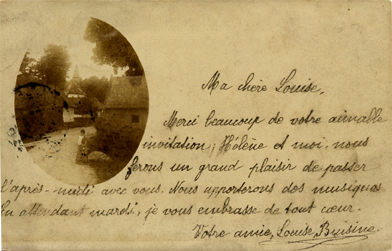 Ma chère Louise,
Merci beaucoup de votre aimable
invitation, Hélène et moi, nous
ferons un grand plaisir de passer
l'après-midi avec vous. Nous apporterons des musiques.
En attendant mardi, je vous embrasse de tout cœur.
Votre amie, Louise Buisine